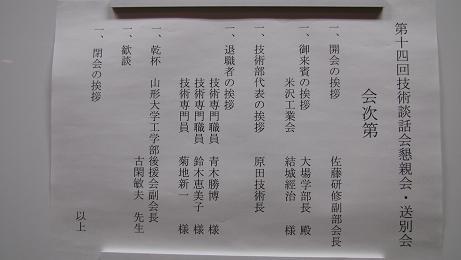 第十四回技術談話会懇親会・送別会
会次第
一、開会の挨拶 佐藤研修副部会長
一、御来賓の挨拶 大場学部長 殿
米沢工業会 結城經治 様
一、技術部代表の挨拶 原田技術長
一、退職者の挨拶
技術専門職員 青木勝博 様
技術専門職員 鈴木恵美子 様
技術専門員 菊地新一 様
一、乾杯 山形大学工学部後援会副会長
古閑敏夫 先生
一、歓談
一、閉会の挨拶
以上